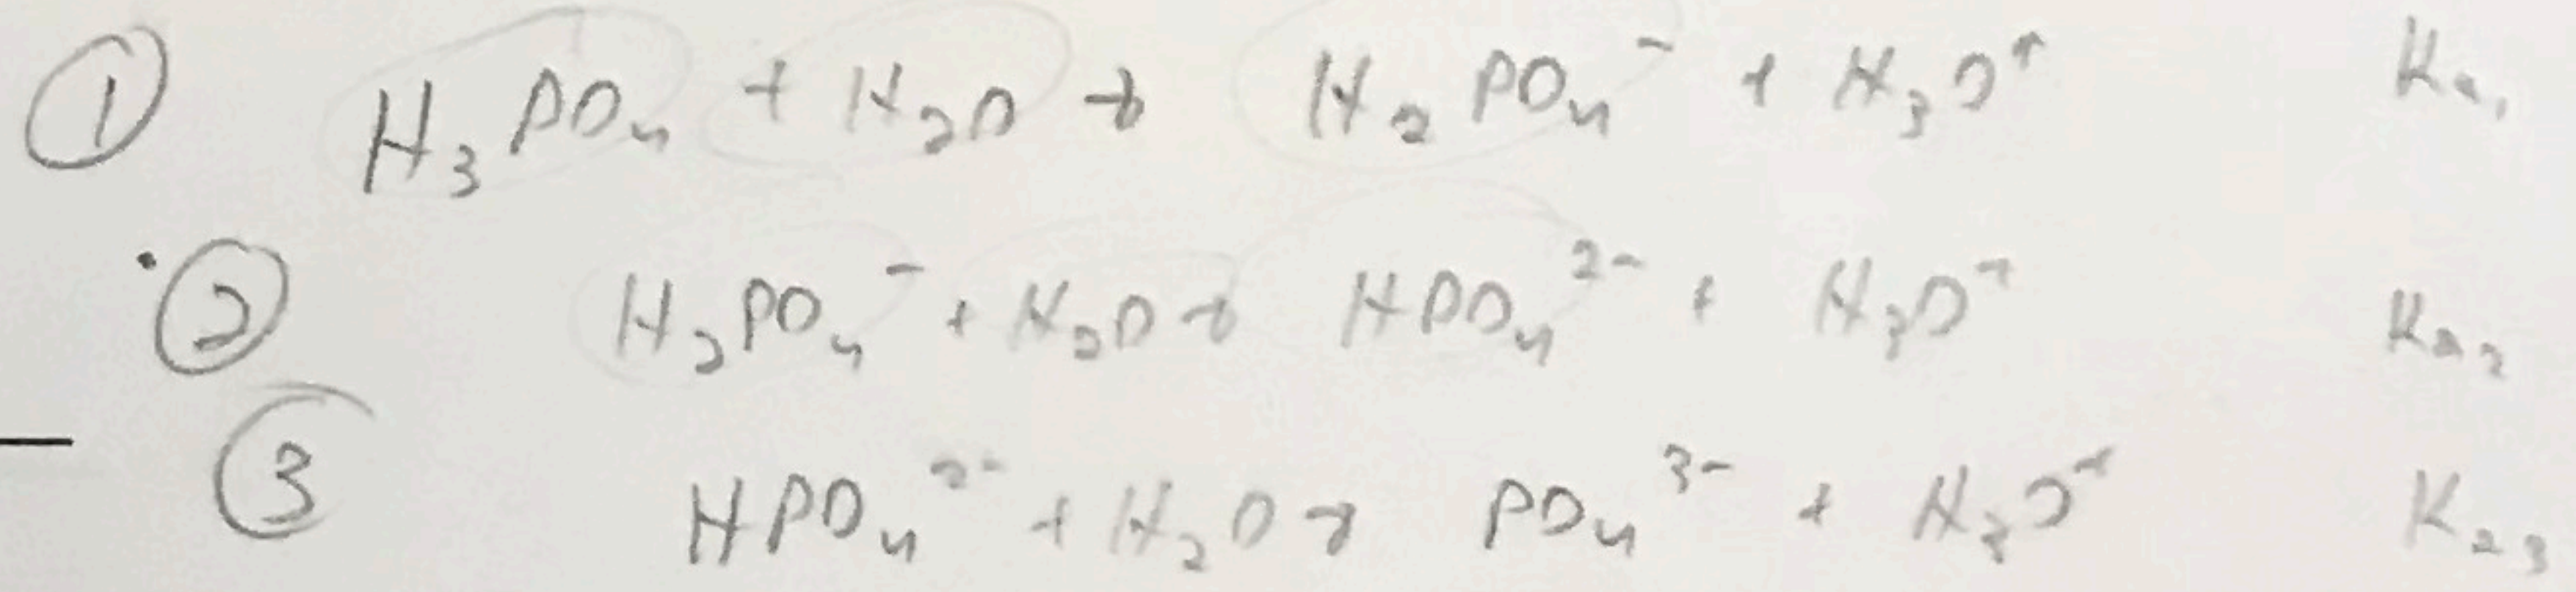 ① H₃PO₄ + H₂O → H₂PO₄⁻ + H₃O⁺ Ka₁
② H₂PO₄⁻ + H₂O → HPO₄²⁻ + H₃O⁺ Ka₂
③ HPO₄²⁻ + H₂O → PO₄³⁻ + H₃O⁺ Ka₃